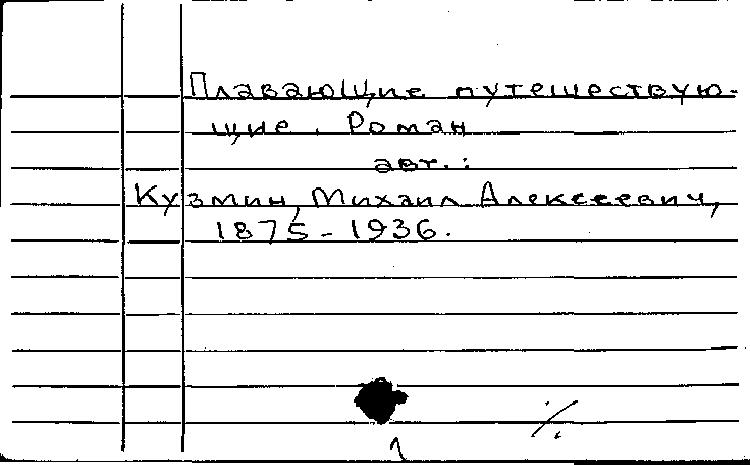 Плавающие путешествую-
щие. Роман
авт.:
Кузмин, Михаил Алексеевич,
1875-1936.